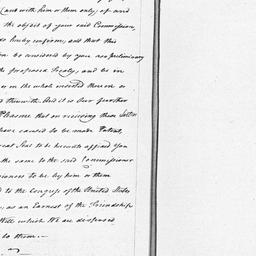 (and with him or them only) of and
the object of your said Commission,
do hereby confirm, and that this
be considered by you as preliminary
the proposed Treaty, and be in
or in the whole inserted therein or
therewith. And it is Our further
Pleasure that on receiving these Letters
have caused to be made Patent,
Great Seal to be herewith affixed you
the same to the said Commissioner
by him or them
to the Congress of the United States
as an Earnest of the Friendship
Will which We are disposed
to them.—